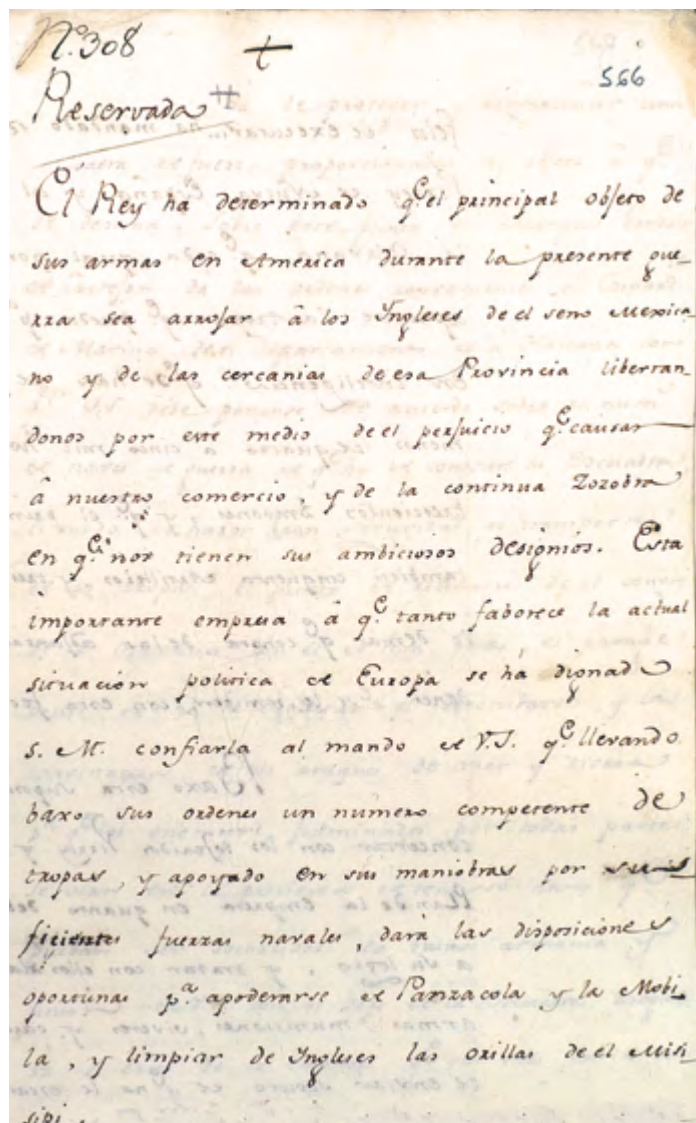 N.º 308
+
566
Reservada
El Rey ha determinado q.e el principal objeto de
sus armas en America durante la presente gue-
rra sea arrojar â los Yngleses de el seno Mexica-
no y de las cercanias de esa Provincia libertan-
donos por este medio de el perjuicio q.e causan
â nuestro comercio, y de la continua Zozobra
en q.e nos tienen sus ambiciosos designios. Esta
importante empresa â q.e tanto faborece la actual
situacion politica de Europa se há dignado
S. M. confiarla al mando de V.S. q.e llevando
baxo sus ordenes un número competente de
tropas, y apoyado en sus maniobras por su
ficientes fuerzas navales, dará las disposiciones
oportunas p.a apoderarse de Panzacola y la Mobi-
la, y limpiar de Yngleses las orillas de el Misi-
sipi.